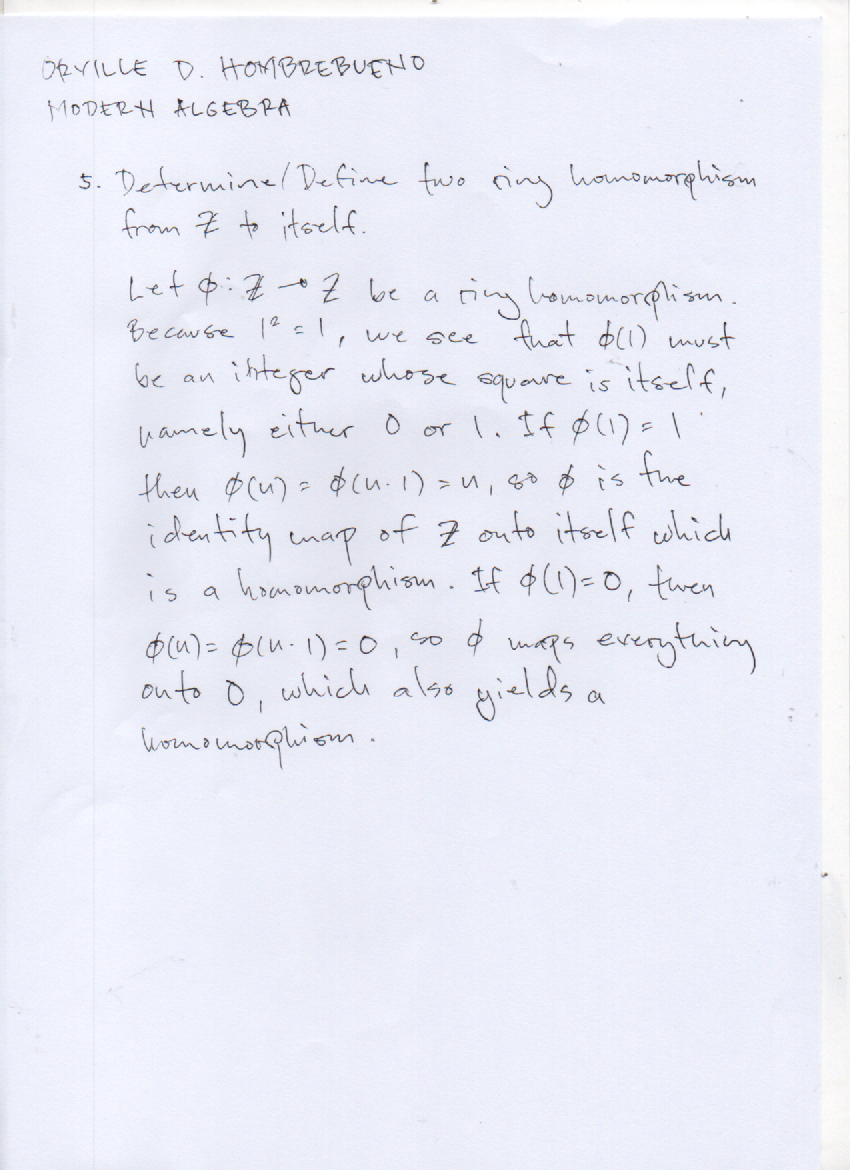 ORVILLE D. HOMBREBUENO
MODERN ALGEBRA
5. Determine/Define two ring homomorphism
from ℤ to itself.
Let ϕ: ℤ → ℤ be a ring homomorphism.
Because 1² = 1, we see that ϕ(1) must
be an integer whose square is itself,
namely either 0 or 1. If ϕ(1) = 1
then ϕ(n) = ϕ(n·1) = n, so ϕ is the
identity map of ℤ onto itself which
is a homomorphism. If ϕ(1) = 0, then
ϕ(n) = ϕ(n·1) = 0, so ϕ maps everything
onto 0, which also yields a
homomorphism.